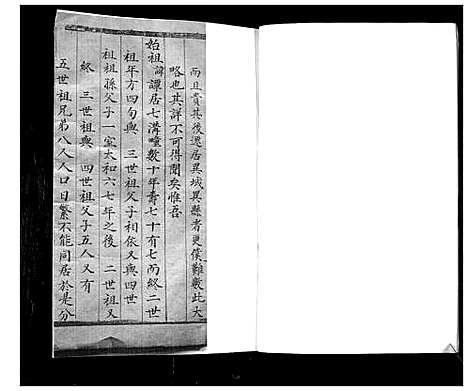 而且貴其後遷居異域異縣者更僕難數此大
略也其詳不可得聞矣惟吾
始祖諱譚居七溝疃數十年壽七十有七而終二世
祖年方四旬與　三世祖父子相依又與四世
祖祖孫父子一室太和六七年之後　二世祖又
終　三世祖與　四世祖父子五人又有
五世祖兄弟八人人口日繁不能同居於是分